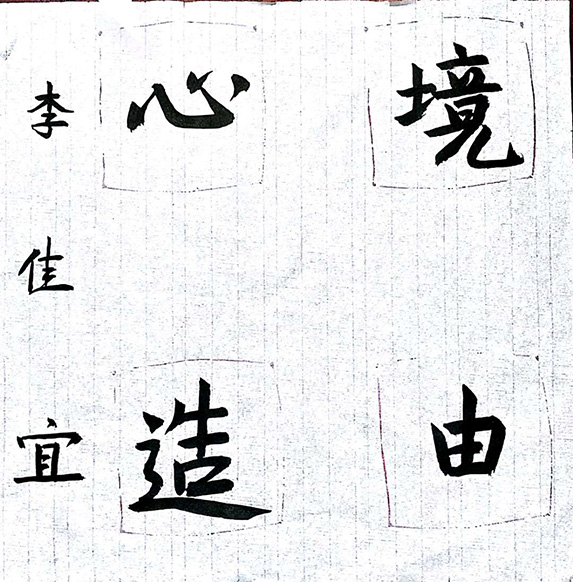 境由
心造
李佳宜